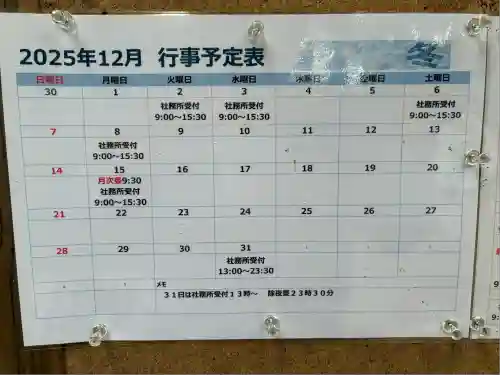 2025年12月 行事予定表 冬
日曜日 月曜日 火曜日 水曜日 木曜日 金曜日 土曜日
30 1 2 3 4 5 6
社務所受付 社務所受付 社務所受付
9:00～15:30 9:00～15:30 9:00～15:30
7 8 9 10 11 12 13
社務所受付
9:00～15:30
14 15 16 17 18 19 20
月次祭9:30
社務所受付
9:00～15:30
21 22 23 24 25 26 27
28 29 30 31
社務所受付
13:00～23:30
メモ
３１日は社務所受付１３時～ 除夜祭２３時３０分